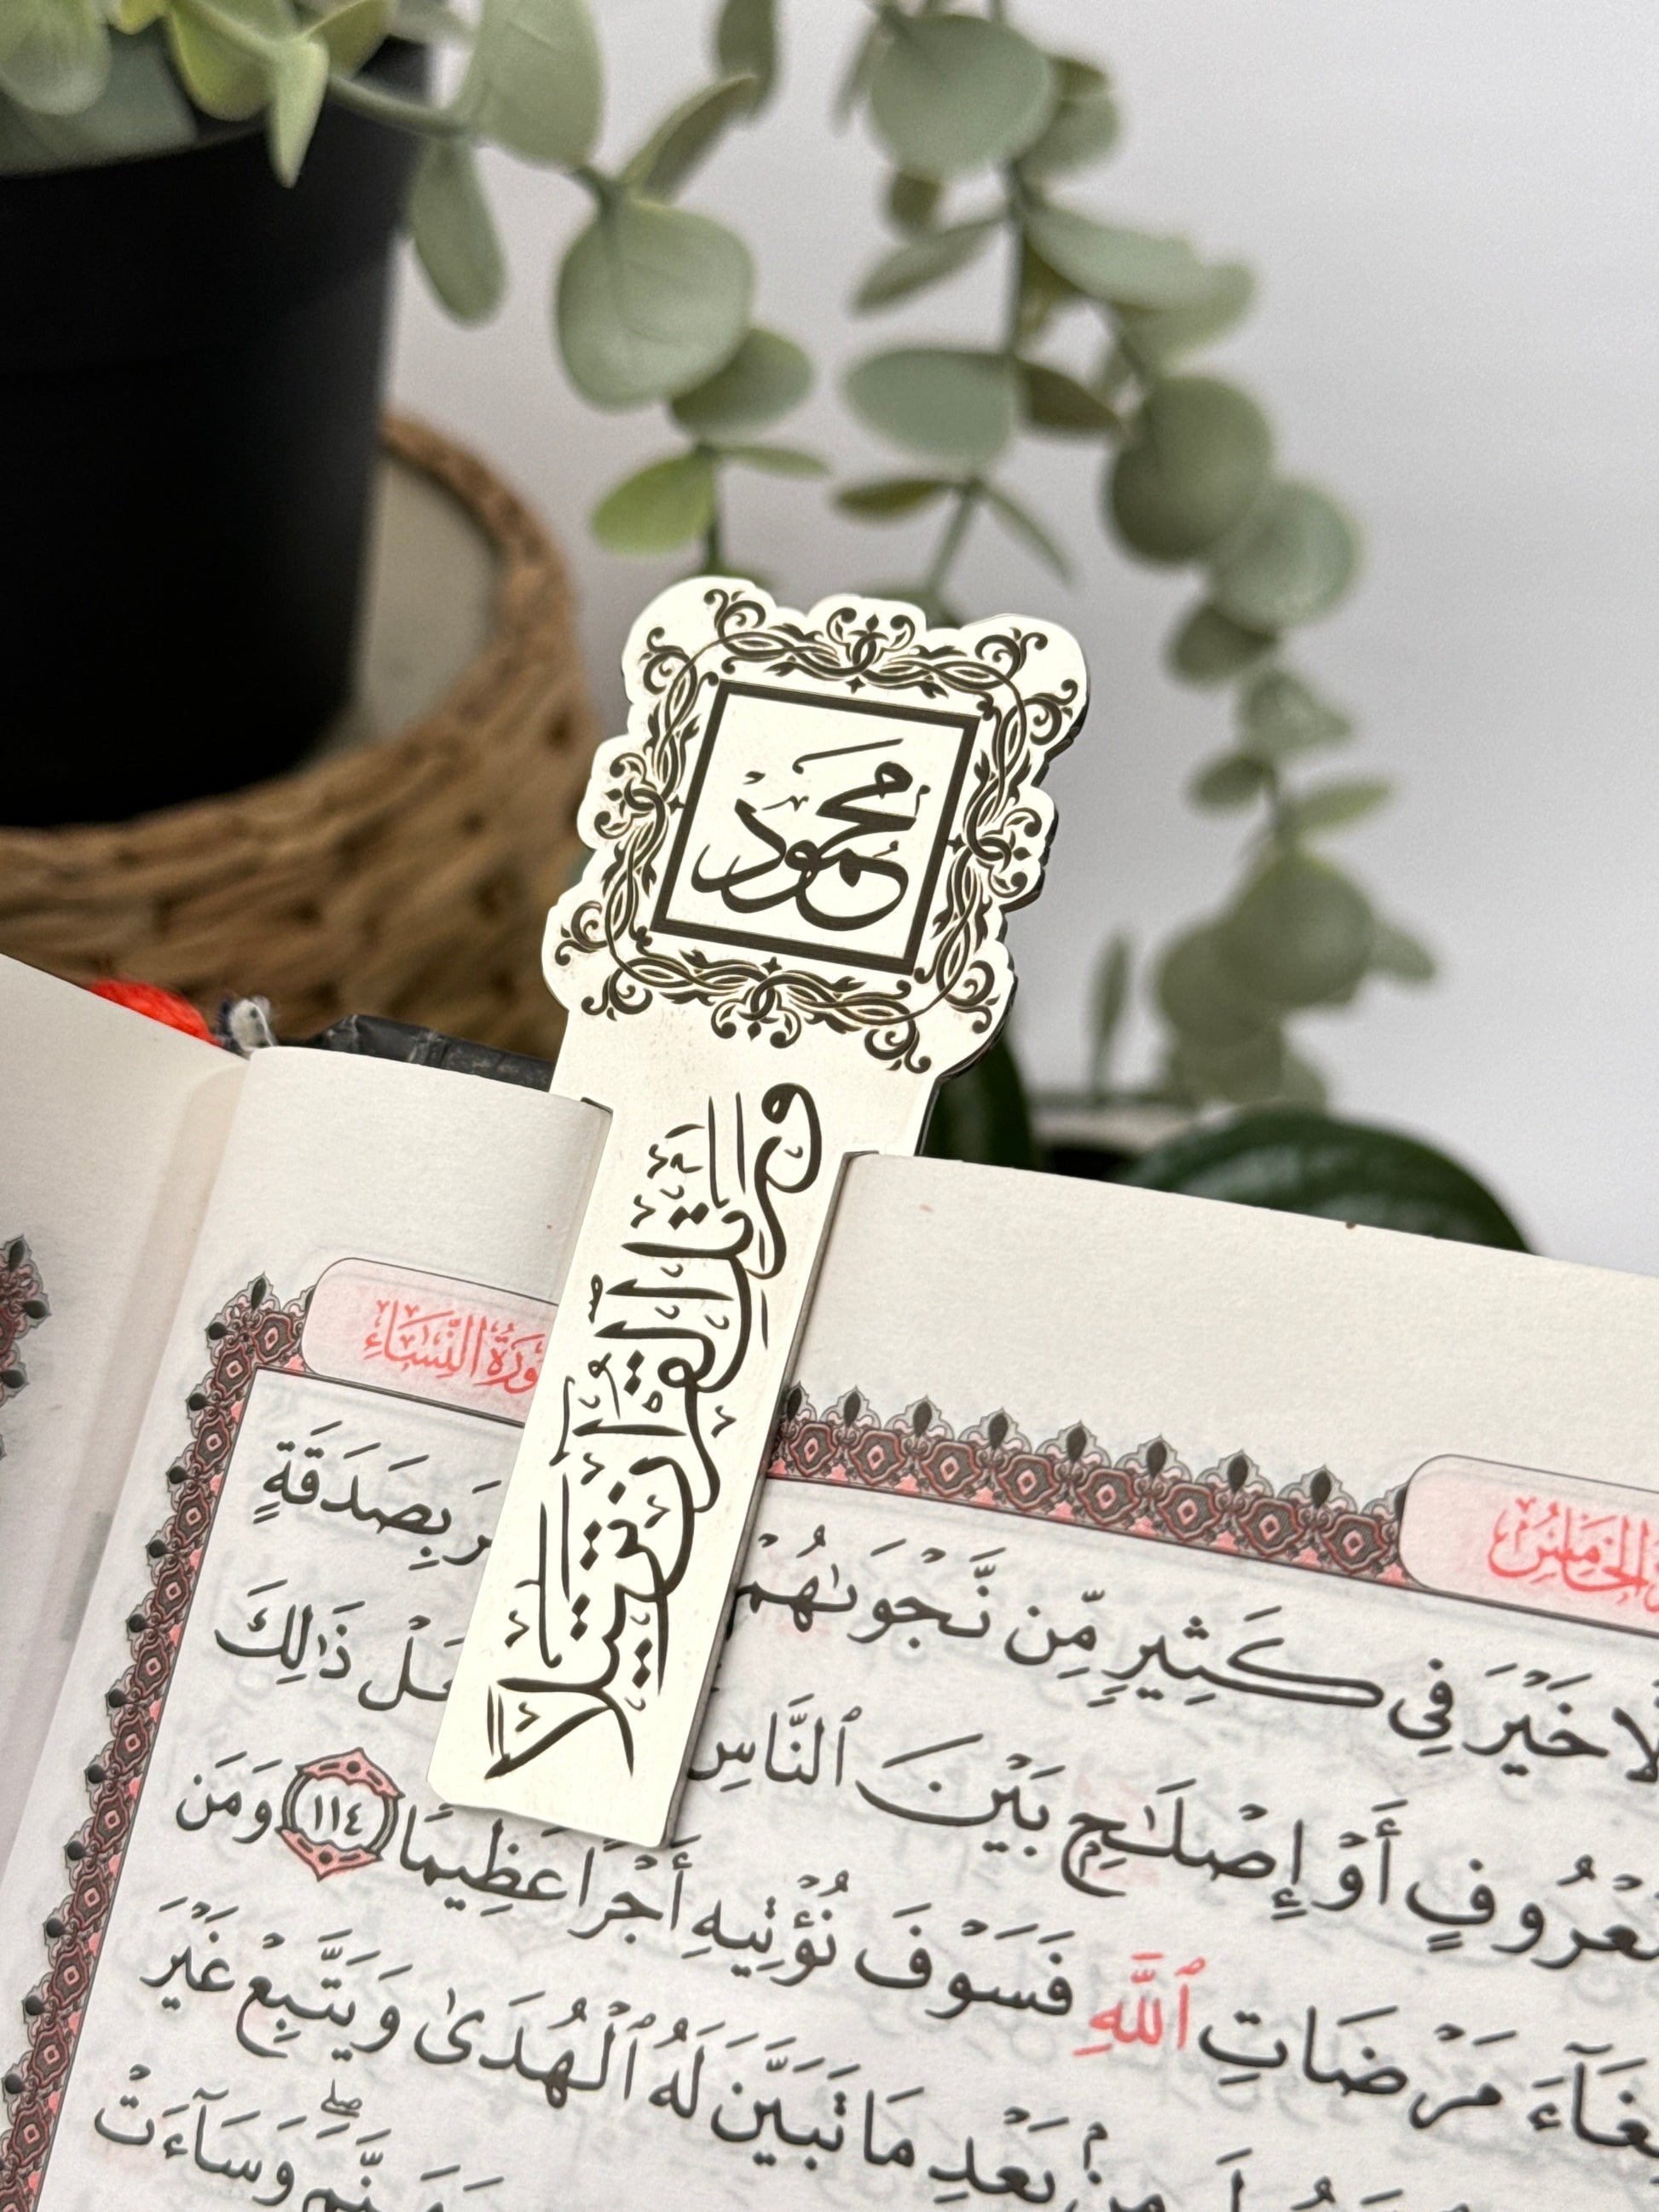 محمود
ورتل القرآن ترتيلا
سُورَةُ النِّسَاءِ
الخَامِسُ
لَّا خَيْرَ فِى كَثِيرٍ مِّن نَّجْوَىٰهُمْ بِصَدَقَةٍ
أَوْ إِصْلَـٰحٍ بَيْنَ ٱلنَّاسِ ذَٰلِكَ
مَرْضَاتِ ٱللَّهِ فَسَوْفَ نُؤْتِيهِ أَجْرًا عَظِيمًا ١١٤ وَمَن
بَعْدِ مَا تَبَيَّنَ لَهُ ٱلْهُدَىٰ وَيَتَّبِعْ غَيْرَ
وَسَآءَتْ